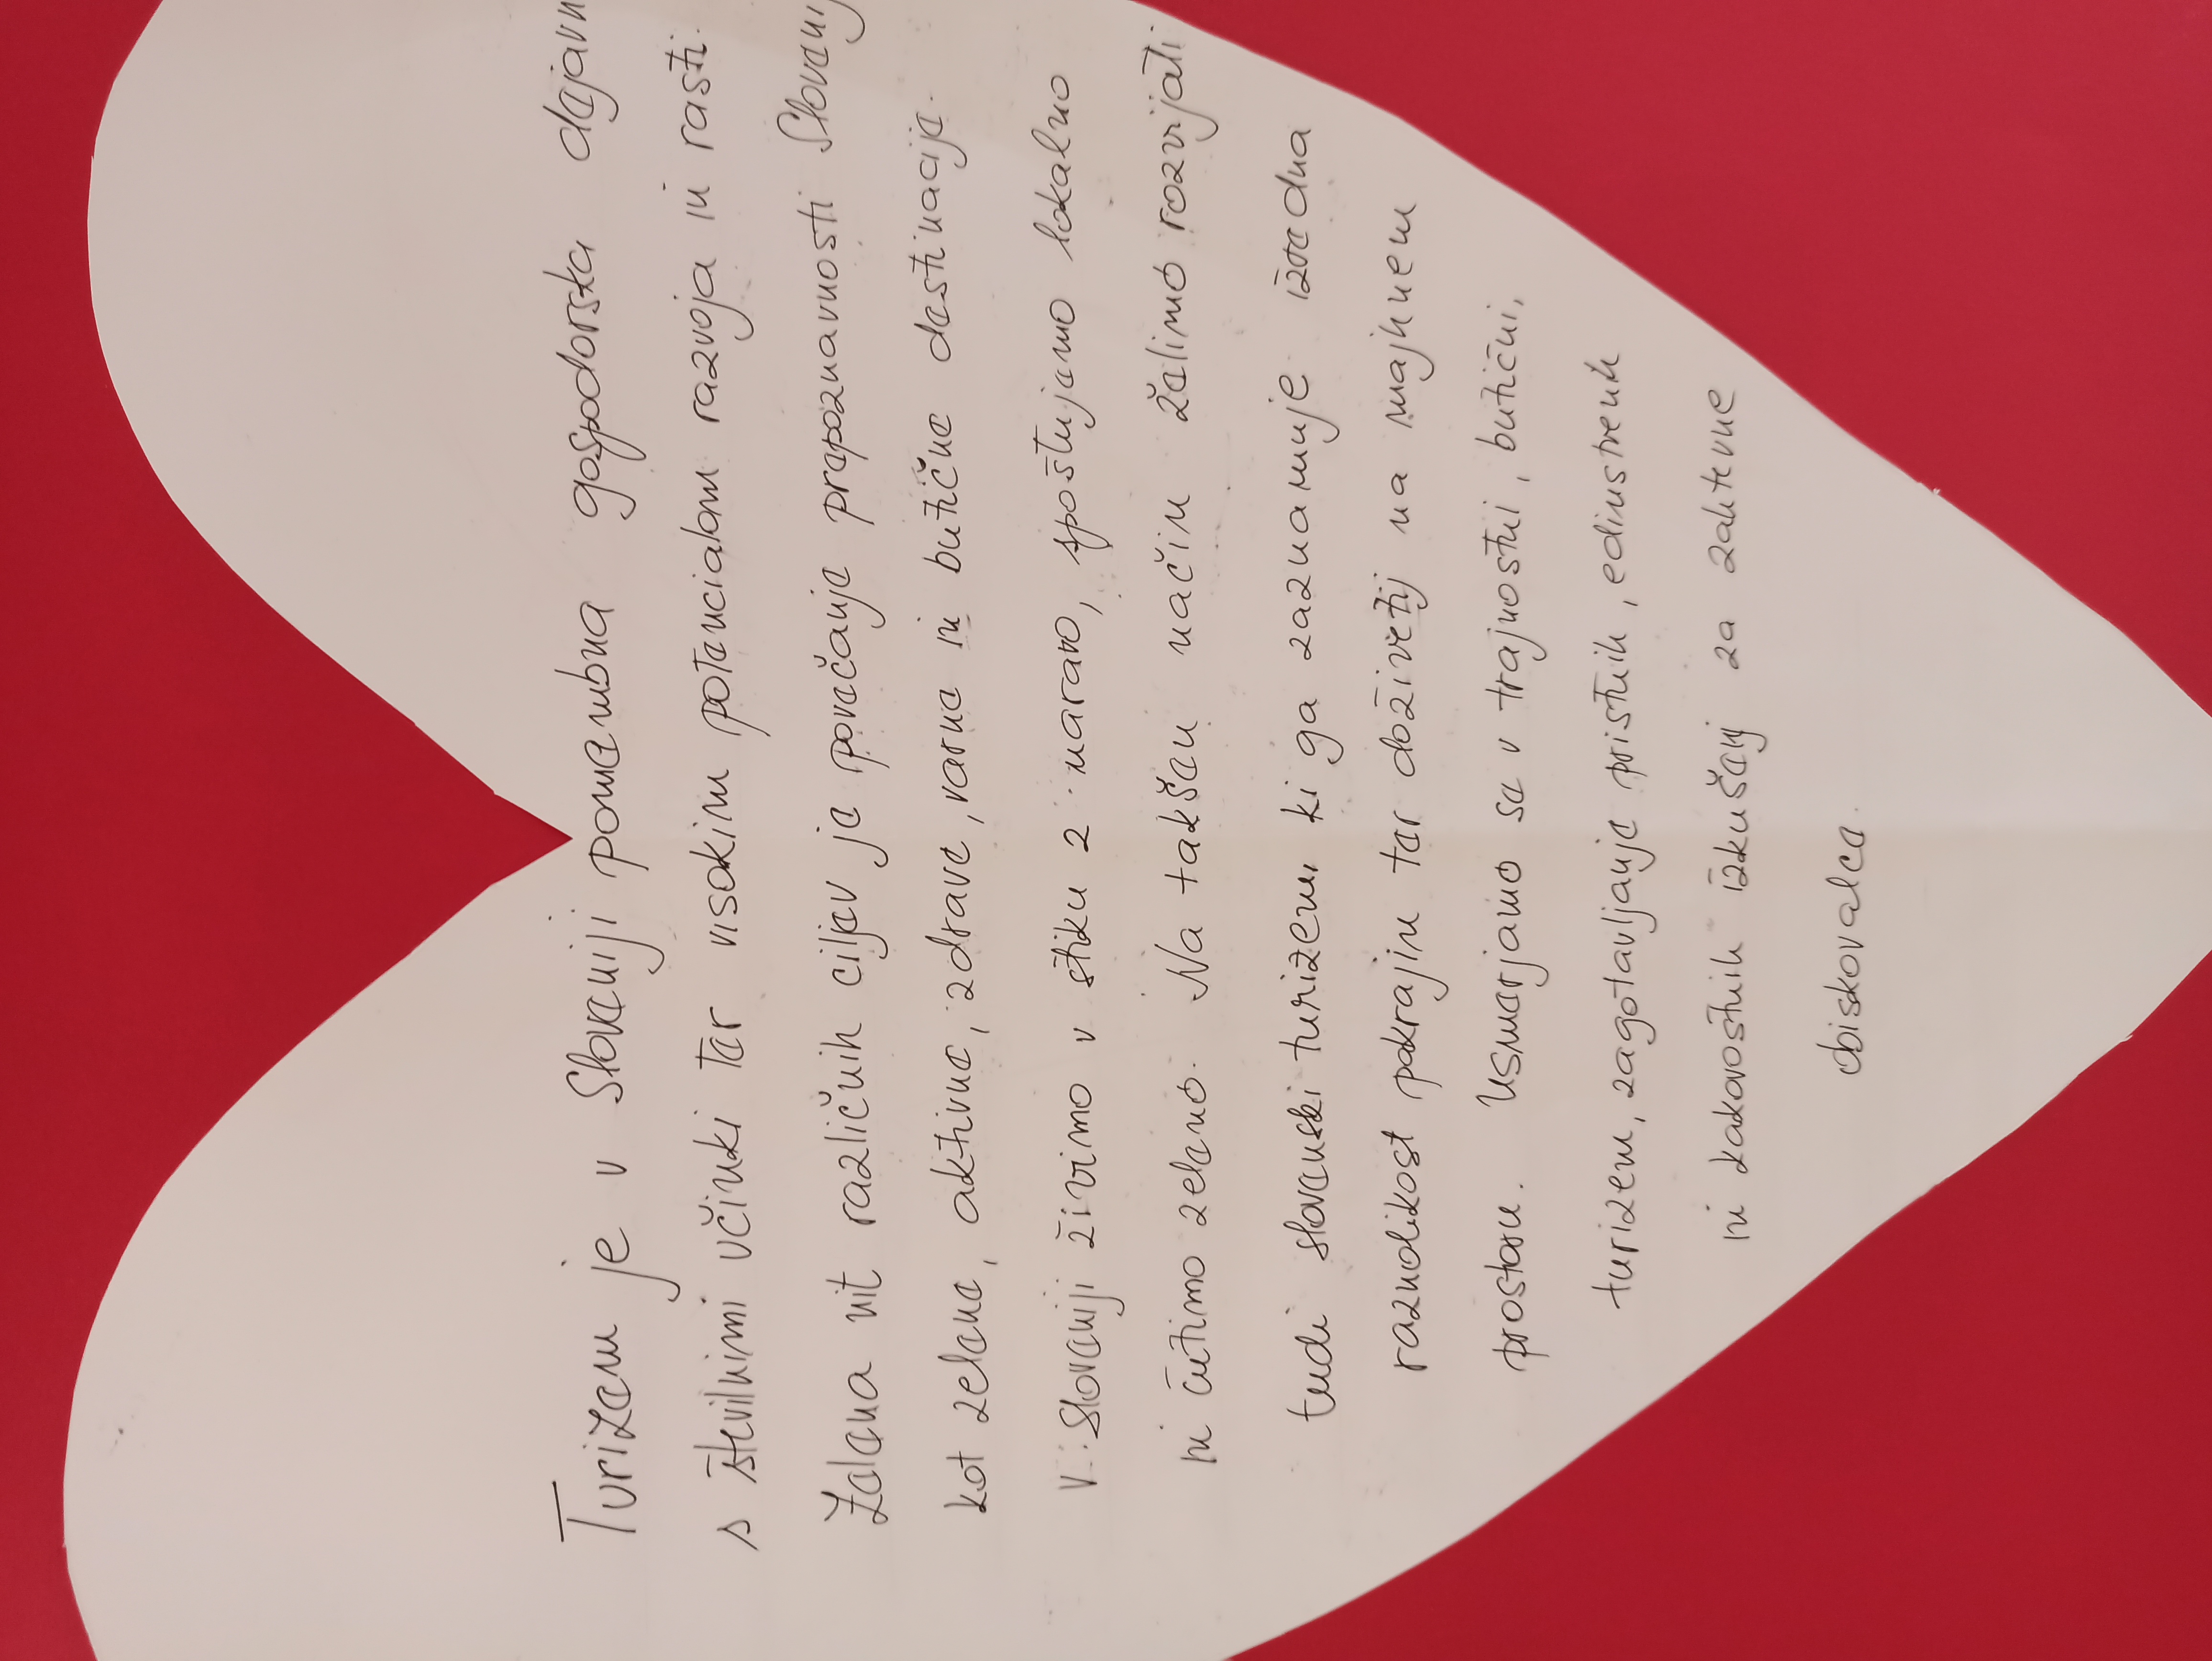 Turizem je v Sloveniji pomembna gospodorska dejavn
s številnimi učinki ter visokim potencialom razvoja in rasti.
Zelena nit različnih ciljev je povečanje prepoznavnosti Slovenij
kot zelene, aktivne, zdrave, varne in butične destinacije.
V Sloveniji živimo v stiku z naravo, spoštujemo lokalno
in čutimo zeleno. Na takšen način želimo razvijati
tudi slovenski turizem, ki ga zaznamuje izredna
raznolikost pokrajin ter doživetij na majhnem
prostoru. Usmerjamo se v trajnostni, butični,
turizem, zagotavljanje pristnih, edinstvenih
in kakovostnih izkušenj za zahtevne
obiskovalce.